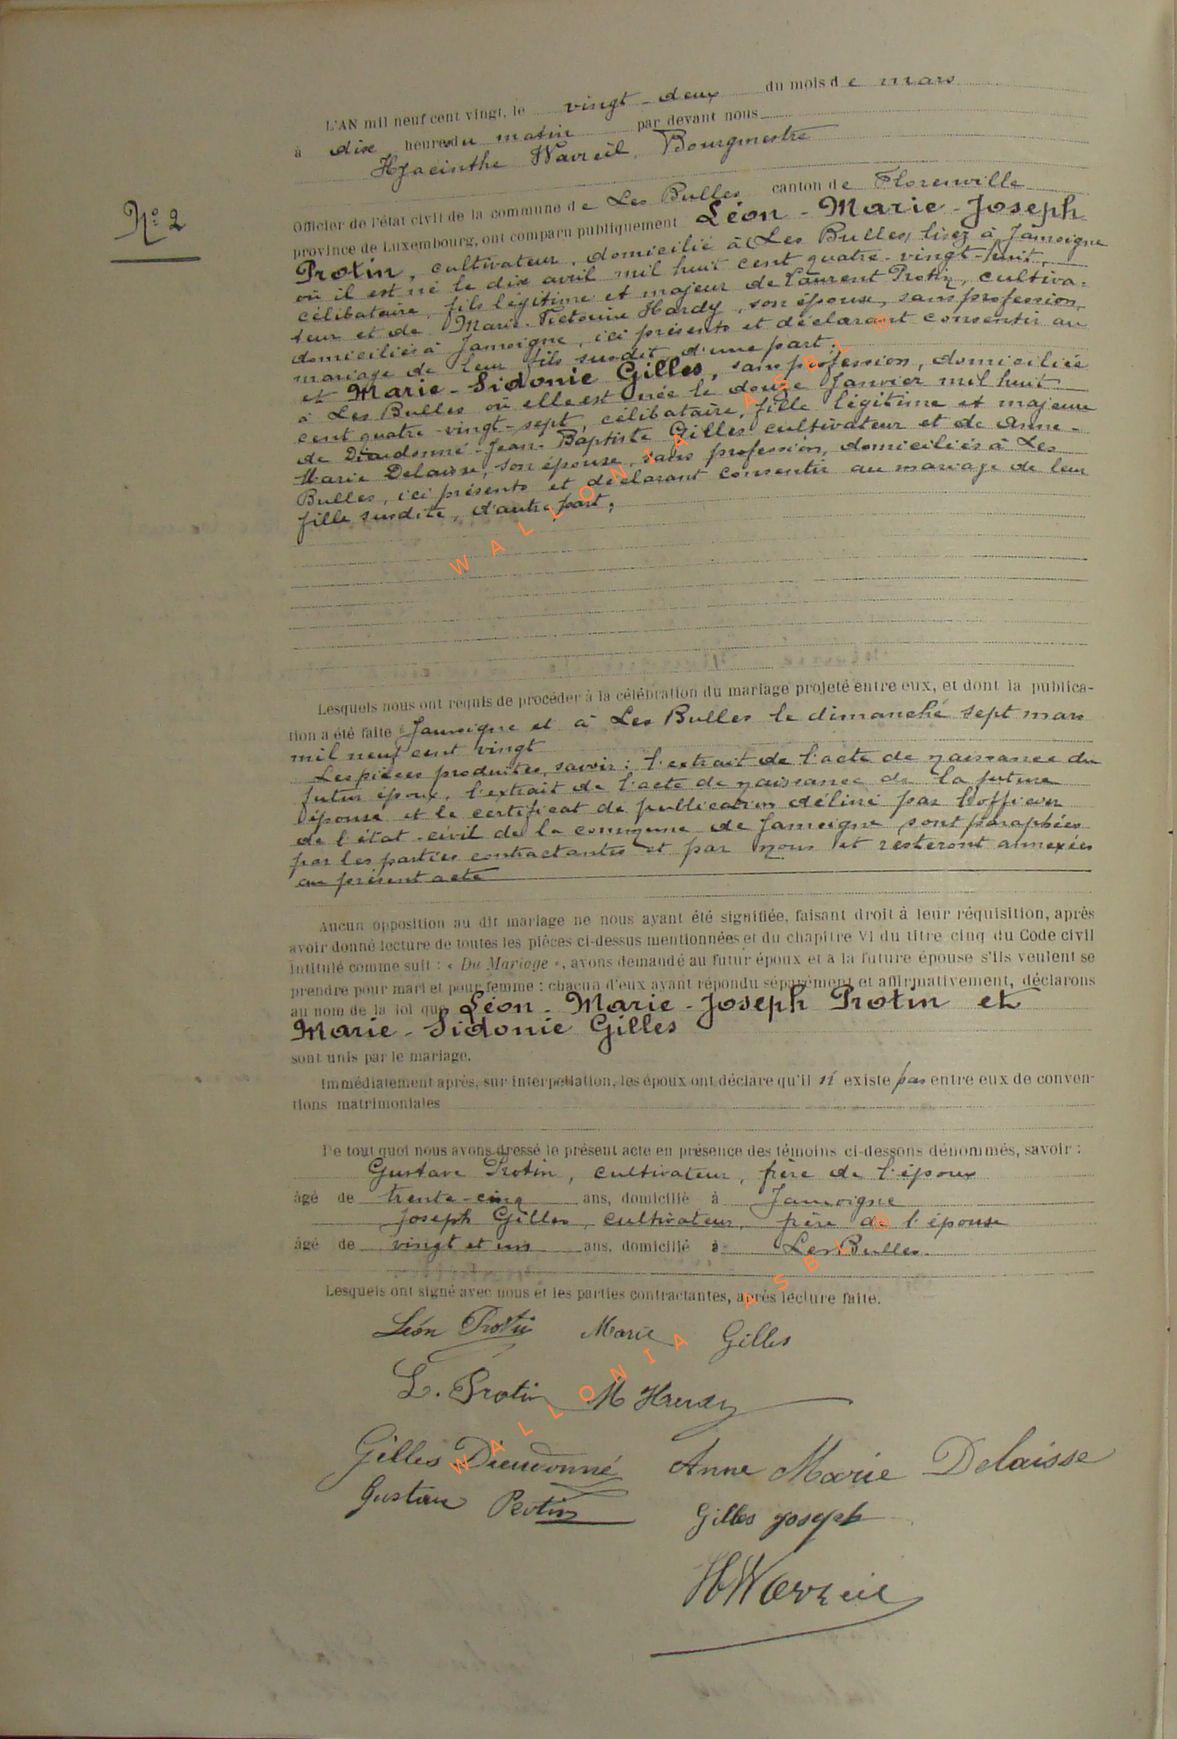 L'AN mil neuf cent vingt, le vingt-deux du mois de mars
à dix heures du matin par devant nous
Hyacinthe Wavreil, Bourgmestre
N° 2
Officier de l'état civil de la commune de Les Bulles canton de Florenville
province de Luxembourg, ont comparu publiquement Léon-Marie-Joseph
Protin, cultivateur, domicilié à Les Bulles, lisez à Jamoigne
où il est né le dix avril mil huit cent quatre-vingt-huit,
célibataire, fils légitime et majeur de Laurent Protin, cultiva-
teur et de Marie-Victorine Hardy, son épouse, sans profession,
domiciliés à Jamoigne, ici présents et déclarant consentir au
mariage de leur fils susdit, d'une part;
et Marie-Sidonie Gilles, sans profession, domiciliée
à Les Bulles où elle est née le douze Janvier mil huit
cent quatre-vingt-sept, célibataire, fille légitime et majeure
de Dieudonné-Jean-Baptiste Gilles cultivateur et de Anne-
Marie Delaisse, son épouse, sans profession, domiciliés à Les
Bulles, ici présents et déclarant consentir au mariage de leur
fille susdite, d'autre part;
WALLONIA ASBL ©
Lesquels nous ont requis de procéder à la célébration du mariage projeté entre eux, et dont la publica-
tion a été faite Jamoigne et à Les Bulles le dimanche sept mars
mil neuf cent vingt
Les pièces produites, savoir: l'extrait de l'acte de naissance du
futur époux, l'extrait de l'acte de naissance de la future
épouse et le certificat de publication délivré par l'officier
de l'état-civil de la commune de Jamoigne sont paraphées
par les parties contractantes et par nous et resteront annexées
au présent acte
Aucun opposition au dit mariage ne nous ayant été signifiée, faisant droit à leur réquisition, après
avoir donné lecture de toutes les pièces ci-dessus mentionnées et du chapitre VI du titre cinq du Code civil
intitulé comme suit : « Du Mariage », avons demandé au futur époux et à la future épouse s'ils veulent se
prendre pour mari et pour femme : chacun d'eux ayant répondu séparément et affirmativement, déclarons
au nom de la loi que Léon-Marie-Joseph Protin et
Marie-Sidonie Gilles
sont unis par le mariage.
Immédiatement après, sur interpellation, les époux ont déclaré qu'il n' existe pas entre eux de conven-
tions matrimoniales
De tout quoi nous avons dressé le présent acte en présence des témoins ci-dessons dénommés, savoir :
Gustave Protin, cultivateur, frère de l'époux
âgé de trente-cinq ans, domicilié à Jamoigne
Joseph Gilles, cultivateur, frère de l'épouse
âgé de vingt et un ans, domicilié à Les Bulles.
Lesquels ont signé avec nous et les parties contractantes, après lecture faite.
Léon Protin Marie Gilles
L. Protin M Hardy
Gilles Dieudonné Anne Marie Delaisse
Gustave Protin Gilles Joseph
HWavreil
WALLONIA ASBL ©